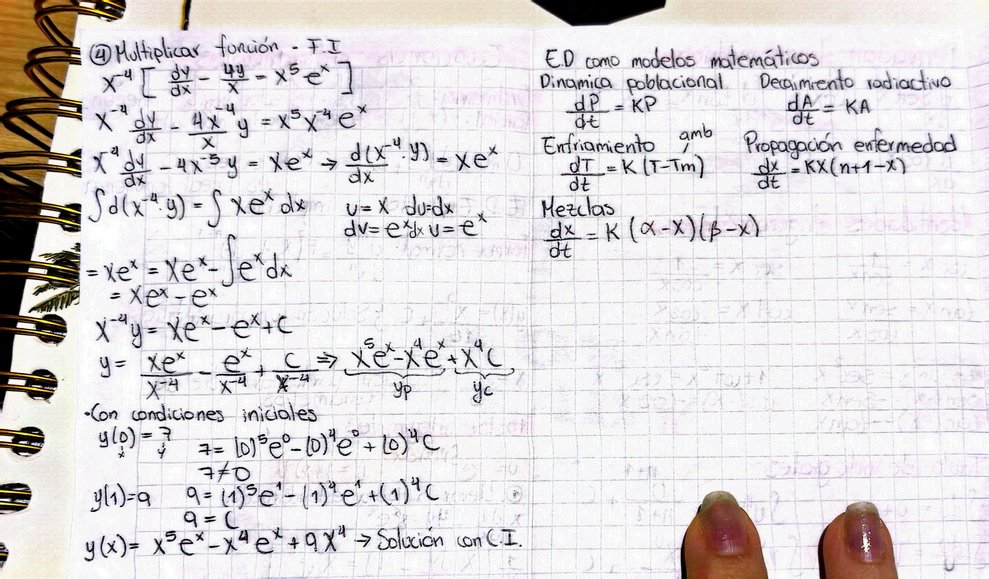 ④ Multiplicar función - F.I
x⁻⁴ [ dy/dx - 4y/x = x⁵eˣ ]
x⁻⁴ dy/dx - 4x⁻⁴/x y = x⁵x⁻⁴eˣ
x⁻⁴ dy/dx - 4x⁻⁵y = xeˣ → d(x⁻⁴·y)/dx = xeˣ
∫d(x⁻⁴·y) = ∫xeˣdx u=x du=dx
dv=eˣdx v=eˣ
= xeˣ = xeˣ - ∫eˣdx
= xeˣ - eˣ
x⁻⁴y = xeˣ - eˣ + c
y = xeˣ/x⁻⁴ - eˣ/x⁻⁴ + c/x⁻⁴ ⇒ x⁵eˣ - x⁴eˣ + x⁴c
yp yc
·Con condiciones iniciales
y(0) = 7 7 = (0)⁵e⁰ - (0)⁴e⁰ + (0)⁴C
x y
7≠0
y(1)=9 9 = (1)⁵e¹ - (1)⁴e¹ + (1)⁴C
9 = C
y(x) = x⁵eˣ - x⁴eˣ + 9x⁴ → Solución con C.I.
E.D como modelos matemáticos
Dinamica poblacional Decaimiento radiactivo
dP/dt = KP dA/dt = KA
Enfriamiento amb Propagación enfermedad
dT/dt = K(T-Tm) dx/dt = KX(n+1-x)
Mezclas
dx/dt = K(α-x)(β-x)